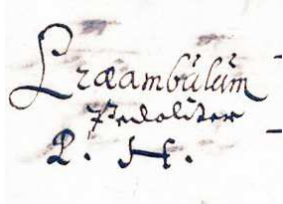 Præambulum
Pedaliter
D. H.